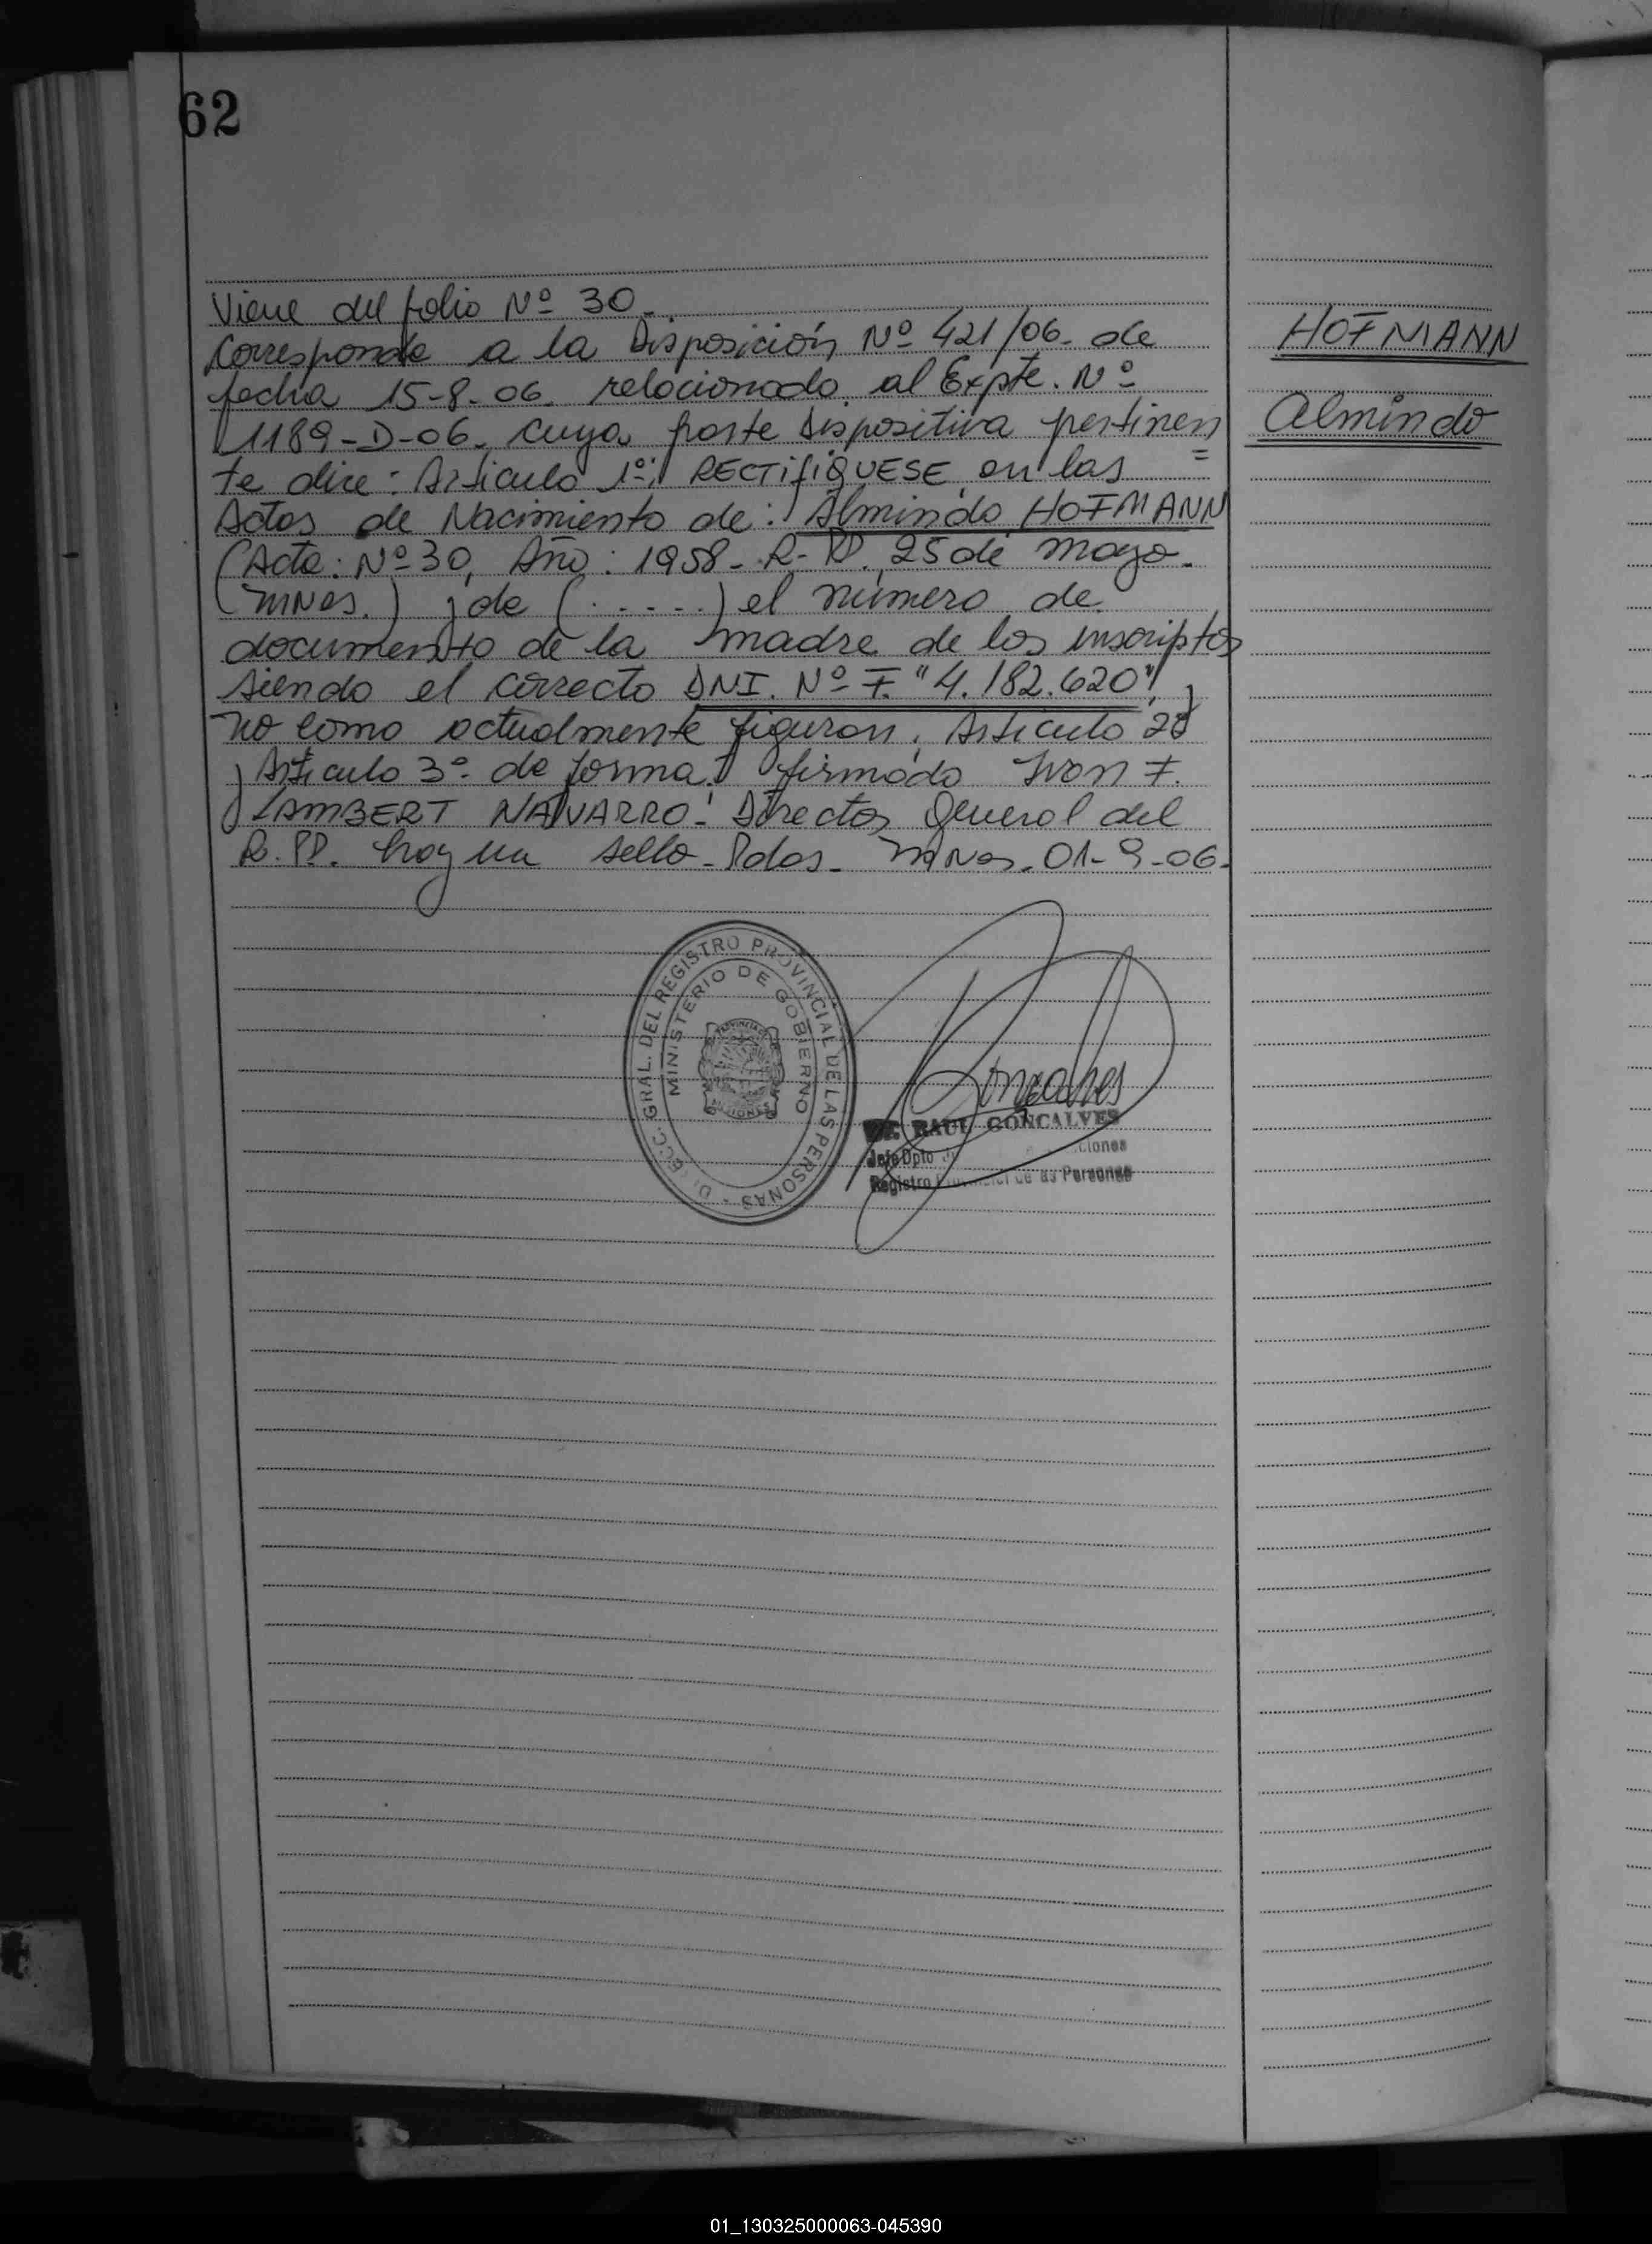 62
Viene del folio Nº 30.-
Corresponde a la Disposición Nº 421/06- de
fecha 15-8-06- relacionado al Expte. Nº
1189-D-06- cuya parte dispositiva pertinen
te dice: Articulo 1º: RECTIFIQUESE en las =
Actas de Nacimiento de: Almindo HOFMANN
(Acta: Nº 30, Año: 1958- R-PP. 25 de Mayo-
Mnes.) y de (.....) el número de
documento de la madre de los inscriptos
siendo el correcto DNI. Nº F. "4.182.620" y
no como actualmente figuran. Articulo 2º
y Articulo 3º- de forma. firmado Ivon F.
LAMBERT NAVARRO- Director General del
R.PP. hay un sello- Pdas- Mnes- 01-9-06-
HOFMANN
Almindo
DI ECC. GRAL. DEL REGISTRO PROVINCIAL DE LAS PERSONAS -
MINISTERIO DE GOBIERNO
MISIONES
Goncalves
RAUL GONCALVES
Jefe Dpto
Registro Provincial de as Personas
01_130325000063-045390